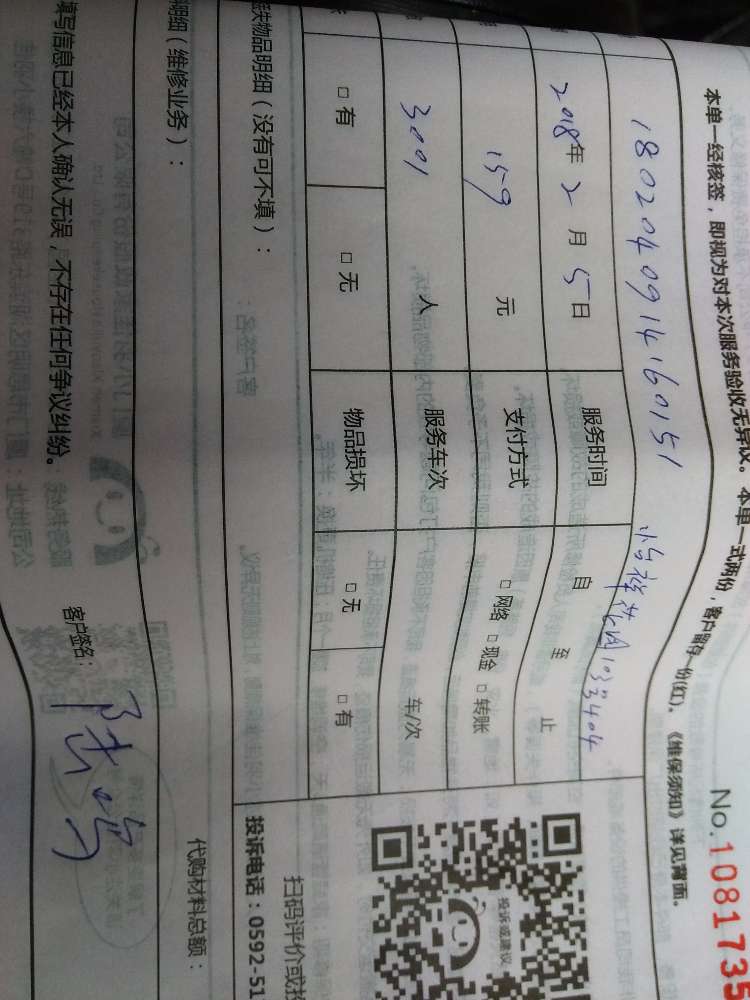 No.1081735
本单一经核签，即视为对本次服务验收无异议。本单一式两份，客户留存一份(红)。《维保须知》详见背面。
180204091460151 怡祥花园103号404
2018年2月5日 服务时间 自 至 止
159 元 支付方式 □网络 □现金 □转账
3001 人 服务车次 车/次
□有 □无 物品损坏 □无 □有
丢失物品明细（没有可不填）：
投诉或建议
扫码评价或投
投诉电话：0592-51
明细（维修业务）：
代购材料总额：
填写信息已经本人确认无误，不存在任何争议纠纷。
客户签名：